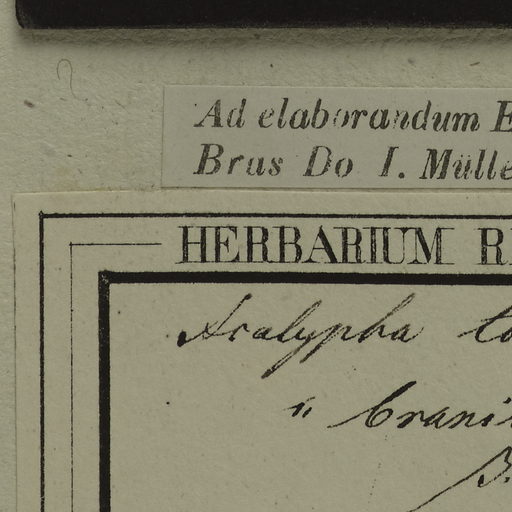 Ad elaborandum E
Bras Do I. Mülle
HERBARIUM R
Acalypha
"